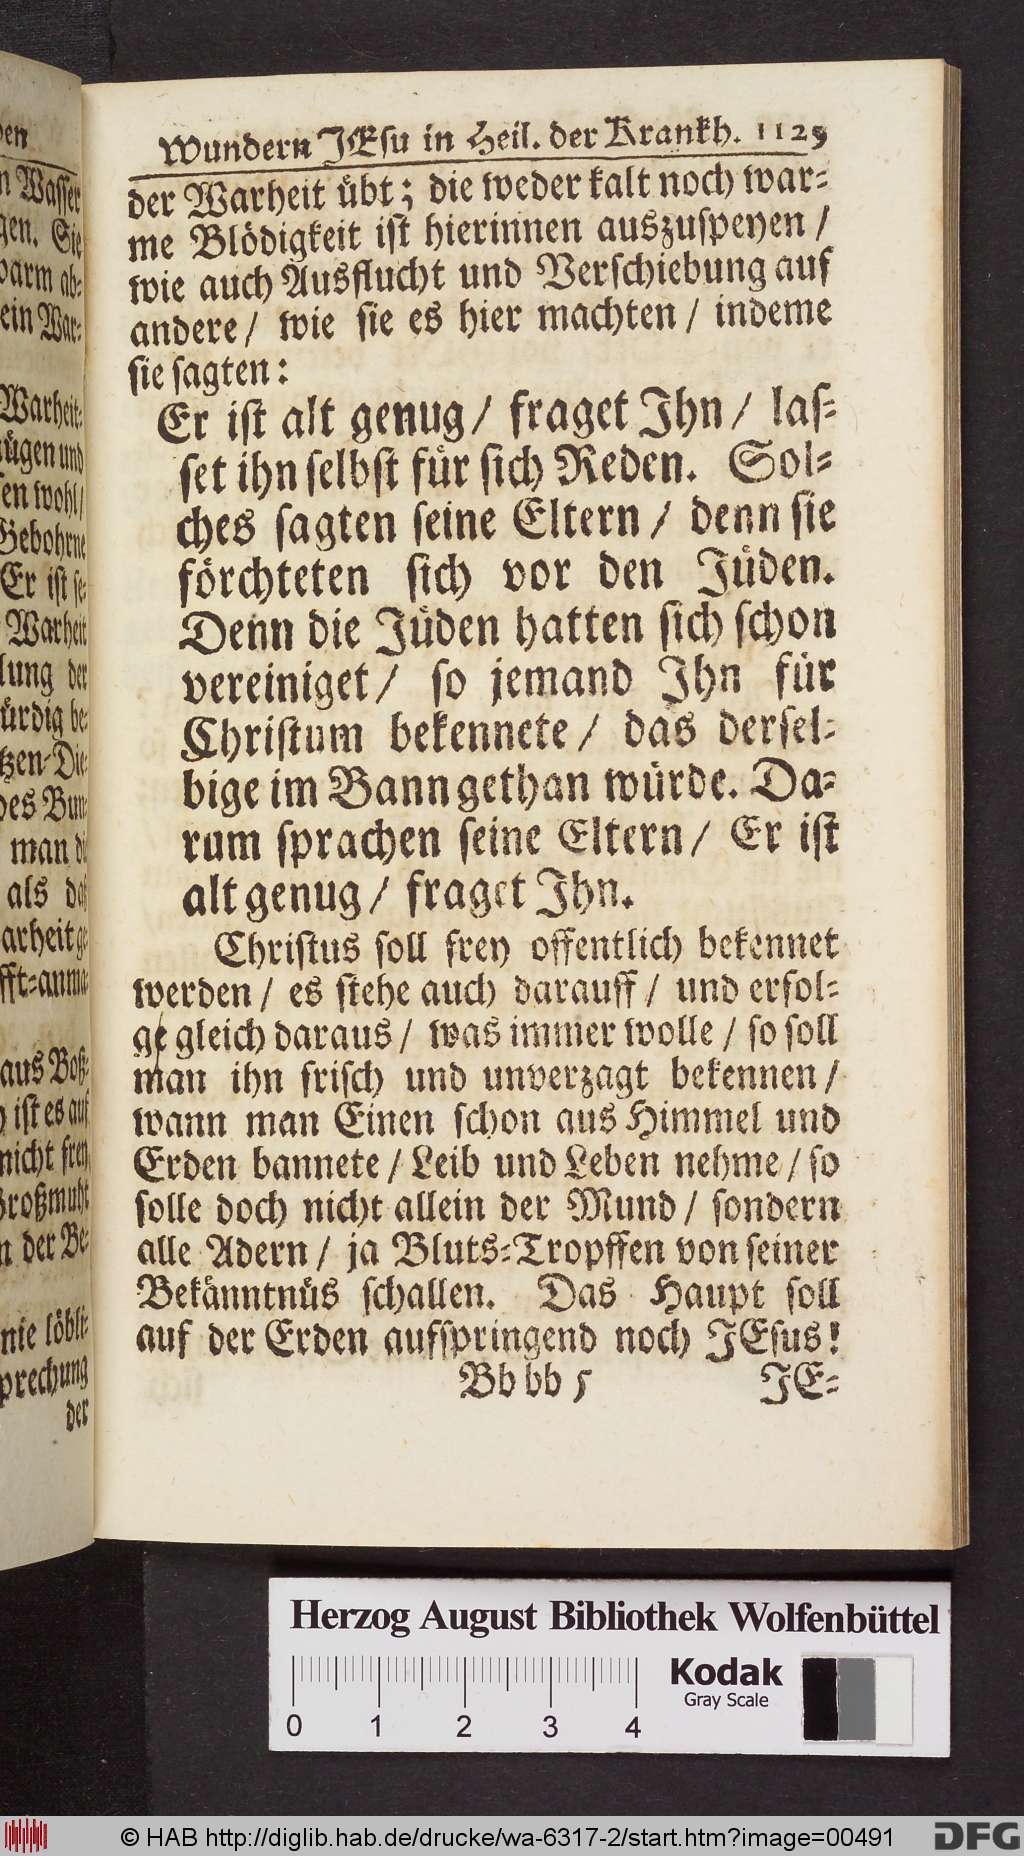 Wundern JEsu in Heil. der Krankh. 1129
der Warheit übt; die weder kalt noch war⸗
me Blödigkeit ist hierinnen auszuspeyen /
wie auch Ausflucht und Verschiebung auf
andere / wie sie es hier machten / indeme
sie sagten:
Er ist alt genug / fraget Ihn / las⸗
set ihn selbst für sich Reden. Sol⸗
ches sagten seine Eltern / denn sie
förchteten sich vor den Jüden.
Denn die Jüden hatten sich schon
vereiniget / so jemand Ihn für
Christum bekennete / das dersel⸗
bige im Bann gethan würde. Da⸗
rum sprachen seine Eltern / Er ist
alt genug / fraget Ihn.
Christus soll frey offentlich bekennet
werden / es stehe auch darauff / und erfol⸗
ge gleich daraus / was immer wolle / so soll
man ihn frisch und unverzagt bekennen /
wann man Einen schon aus Himmel und
Erden bannete / Leib und Leben nehme / so
solle doch nicht allein der Mund / sondern
alle Adern / ja Bluts⸗Tropffen von seiner
Bekänntnüs schallen. Das Haupt soll
auf der Erden aufspringend noch JEsus!
Bb bb 5 JE⸗
Wasser
gen. Sie
ab⸗
ein War⸗
Warheit⸗
und
wohl /
Gebohrne
Er ist se⸗
Warheit
der
be⸗
Die⸗
des Bun⸗
man
als
aus Boß⸗
ist es auf
nicht frey
Großmuht
der Be⸗
nie löbli⸗
der
Herzog August Bibliothek Wolfenbüttel
Kodak
Gray Scale
0 1 2 3 4
© HAB http://diglib.hab.de/drucke/wa-6317-2/start.htm?image=00491
DFG